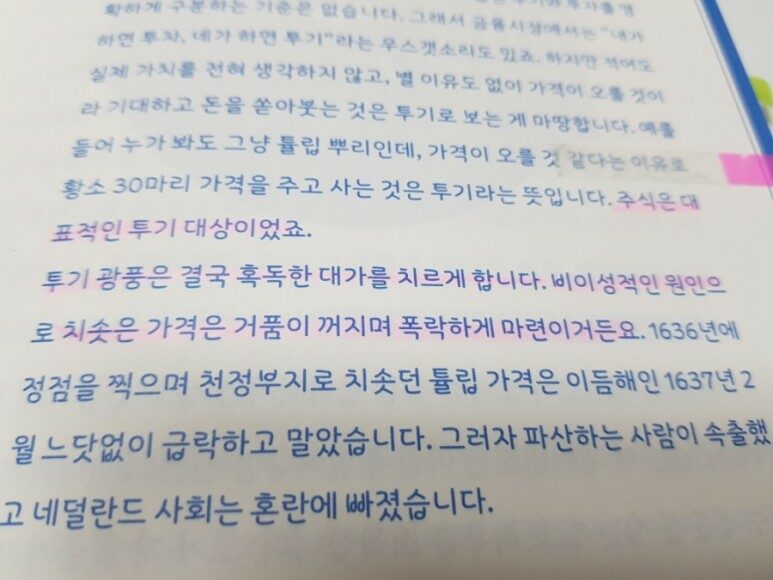 확하게 구분하는 기준은 없습니다. 그래서 금융시장에서는 "내가
하면 투자, 네가 하면 투기"라는 우스갯소리도 있죠. 하지만 적어도
실제 가치를 전혀 생각하지 않고, 별 이유도 없이 가격이 오를 것이
라 기대하고 돈을 쏟아붓는 것은 투기로 보는 게 마땅합니다. 예를
들어 누가 봐도 그냥 튤립 뿌리인데, 가격이 오를 것 같다는 이유로
황소 30마리 가격을 주고 사는 것은 투기라는 뜻입니다. 주식은 대
표적인 투기 대상이었죠.
투기 광풍은 결국 혹독한 대가를 치르게 합니다. 비이성적인 원인으
로 치솟은 가격은 거품이 꺼지며 폭락하게 마련이거든요. 1636년에
정점을 찍으며 천정부지로 치솟던 튤립 가격은 이듬해인 1637년 2
월 느닷없이 급락하고 말았습니다. 그러자 파산하는 사람이 속출했
고 네덜란드 사회는 혼란에 빠졌습니다.